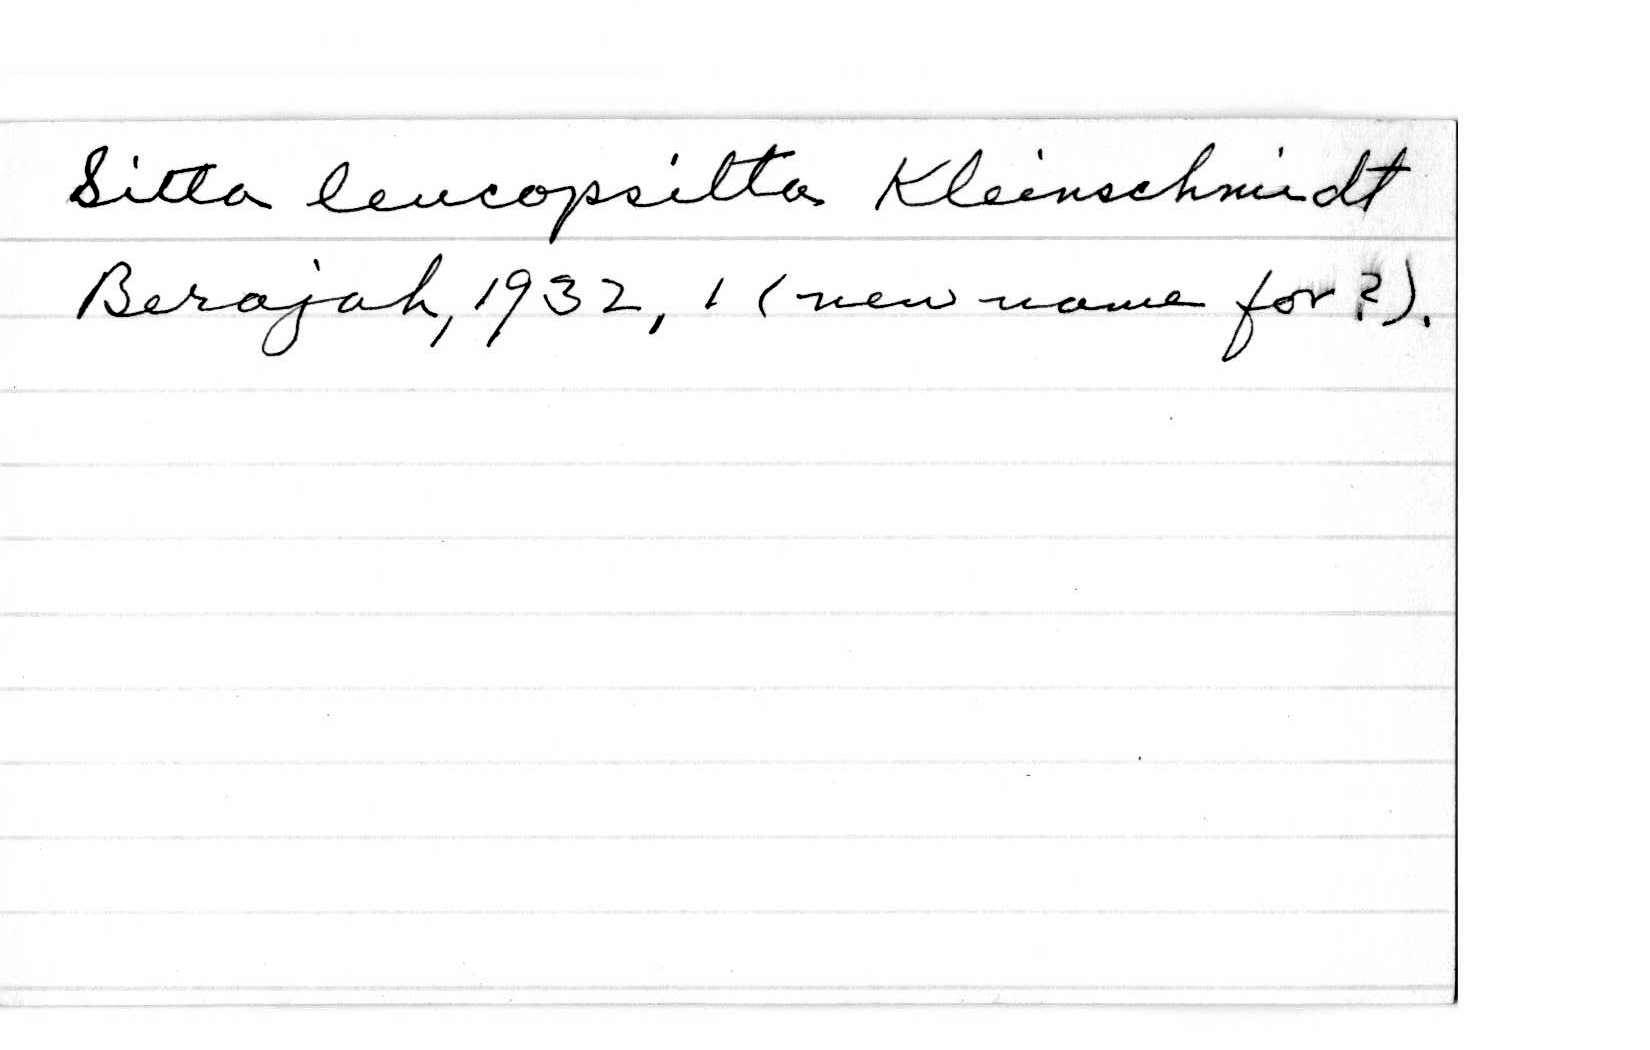 Sitta leucopsitta Kleinschmidt
Berajah, 1932, 1 (new name for ?).